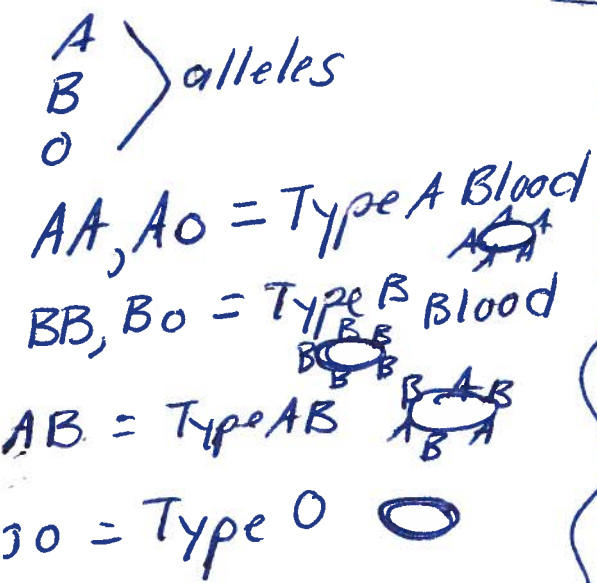 A
B
O
alleles
AA, AO = Type A Blood
A A A A A
BB, BO = Type B Blood
B B B B B
AB = Type AB
B A B A B A
OO = Type O